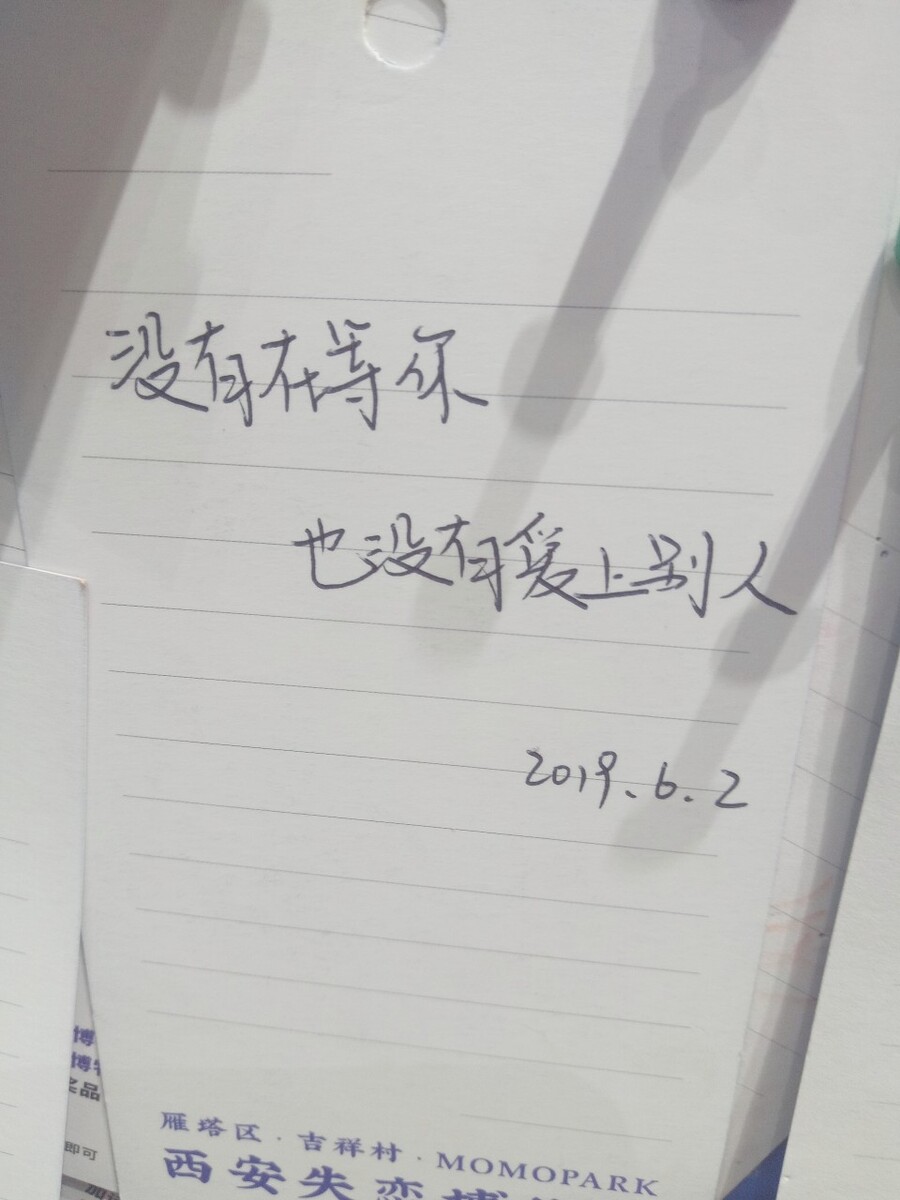 没有在等你
也没有爱上别人
2019.6.2
雁塔区·吉祥村·MOMOPARK
西安失恋博
博
博
奖品
即可